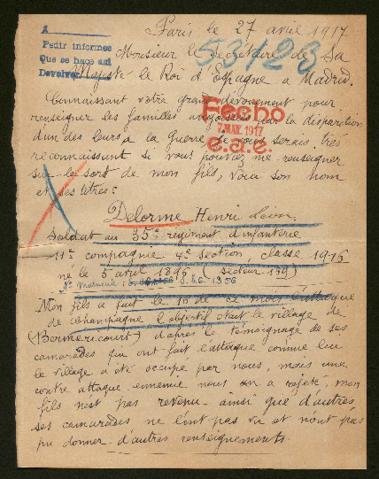 Paris le 27 avril 1917
A
Pedir informes
Que se hace así
Devolver
53123
Monsieur le Secrétaire de Sa
Majesté le Roi d'Espagne a Madrid.
Fecho
7 MAY. 1917
e.a.e.
Connaissant votre grand dévouement pour
renseigner les familles par la disparition
d'un des leurs a la guerre je vous serais très
reconnaissant si vous pouviez me renseigner
sur le sort de mon fils, voici son nom
et ses titres:
Delorme Henri Léon,
Soldat au 35e régiment d'infanterie
11e compagnie 4e section, classe 1916
né le 5 avril 1896 (secteur 139)
Mon fils a fait le 16 de ce mois l'attaque
de champagne l'objectif était le village de
(Bermericourt) d'après le témoignage de ses
camarades qui ont fait l'attaque comme lui
le village a été occupé par nous, mais une
contre attaque ennemie nous en a rejeté, mon
fils n'est pas revenu ainsi que d'autres,
ses camarades ne l'ont pas vu et n'ont pas
pu donner d'autres renseignements.